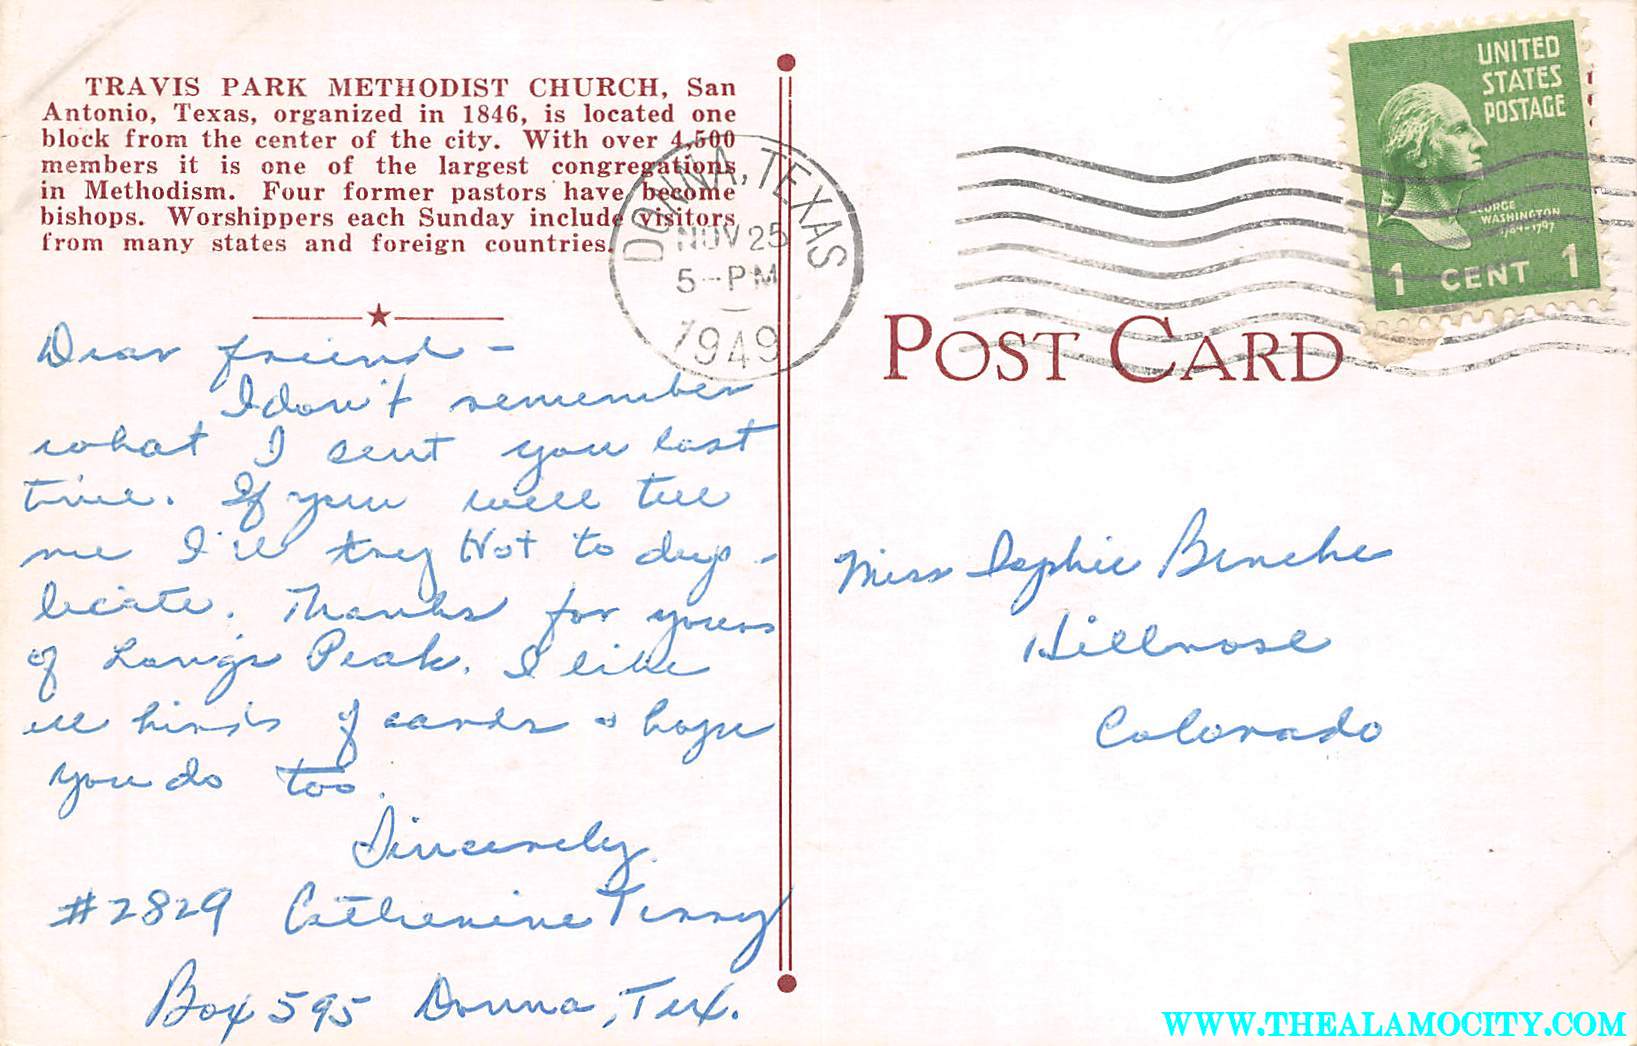 TRAVIS PARK METHODIST CHURCH, San
Antonio, Texas, organized in 1846, is located one
block from the center of the city. With over 4,500
members it is one of the largest congregations
in Methodism. Four former pastors have become
bishops. Worshippers each Sunday include visitors
from many states and foreign countries.
Dear friend -
I don't remember
what I sent you last
time. If you will tell
me I'll try Not to dup-
licate. Thanks for yours
of Longs Peak. I like
all kinds of cards & hope
you do too.
Sincerely
#2829 Catherine Terry
Box 595 Donna, Tex.
DONNA, TEXAS
NOV 25
5-PM
1949
UNITED
STATES
POSTAGE
GEORGE
WASHINGTON
1789-1797
1 CENT 1
POST CARD
Miss Sophie
Hillrose
Colorado
WWW.THEALAMOCITY.COM